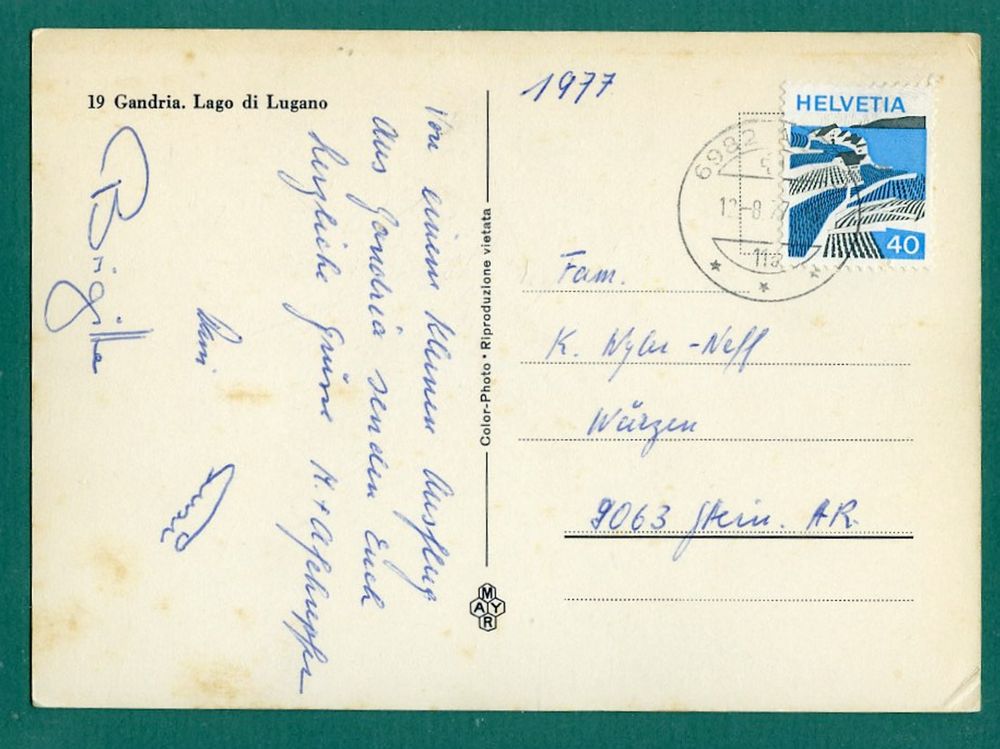 19 Gandria. Lago di Lugano
Von einem kleinen Ausflug
aus Gandria senden Euch
herzliche Grüsse M. + A
Brigitte
Color-Photo • Riproduzione vietata
MAYR
1977
HELVETIA
40
6982
12-8
11a
Fam.
K. Wyler-Neff
Würzen
9063 Stein. AR.